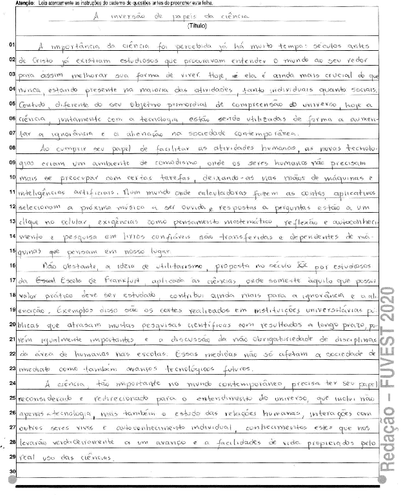 Atenção: Leia atentamente as instruções do caderno de questões antes de preencher esta folha.
A inversão de papéis da ciência
(Título)
01 A importância da ciência foi percebida já há muito tempo: séculos antes
02 de Cristo já existiam estudiosos que procuravam entender o mundo ao seu redor
03 para assim melhorar sua forma de viver. Hoje, é ela é ainda mais crucial do que
04 nunca, estando presente na maioria das atividades, tanto individuais quanto sociais.
05 Contudo, diferente do seu objetivo primordial de compreensão do universo, hoje a
06 ciência, juntamente com a tecnologia, estão sendo utilizadas de forma a aumen-
07 tar a ignorância e a alienação na sociedade contemporânea.
08 Ao cumprir seu papel de facilitar as atividades humanas, as novas tecnolo-
09 gias criam um ambiente de comodismo onde os seres humanos não precisam
10 mais se preocupar com certas tarefas, deixando-as nas mãos de máquinas e
11 inteligências artificiais. Num mundo onde calculadoras fazem as contas, aplicativos
12 selecionam a próxima música a ser ouvida e respostas a perguntas estão a um
13 clique no celular, exigências como pensamento matemático, reflexão e autoconheci-
14 mento e pesquisa em livros confiáveis são transferidas e dependentes de má-
15 quinas que pensam em nosso lugar.
16 Não obstante, a ideia de utilitarismo, proposta no século XX por estudiosos
17 da Escola de Frankfurt aplicada às ciências, onde somente aquilo que possui
18 valor prático deve ser estudado, contribui ainda mais para a ignorância e a ali-
19 enação. Exemplos disso são os cortes realizados em instituições universitárias pú-
20 blicas que atrasam muitas pesquisas científicas com resultados a longo prazo, po-
21 rém igualmente importantes, e a discussão da não obrigatoriedade de disciplinas
22 da área de humanas nas escolas. Essas medidas não só afetam a sociedade de
23 imediato como também avanços tecnológicos futuros.
24 A ciência, tão importante no mundo contemporâneo, precisa ter seu papel
25 reconsiderado e redirecionado para o entendimento do universo, que inclui não
26 apenas tecnologia, mas também o estudo das relações humanas, interações com
27 outros seres vivos e autoconhecimento individual, conhecimentos estes que nos
28 levarão verdadeiramente a um avanço e a facilidades de vida propiciados pelo
29 real uso das ciências.
30
Redação – FUVEST 2020